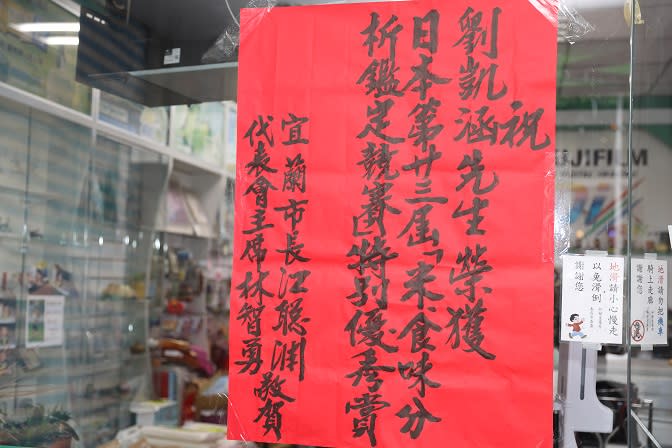 祝
劉凱涵先生榮獲
日本第廿三屆「米食味分
析鑑定競賽」特別優秀賞
宜蘭市長江聰淵
代表會主席林智勇敬賀
UJIFILM
地滑請小心慢走
以免滑倒
謝謝您
地滑請勿把機車
騎上走廊
謝謝您